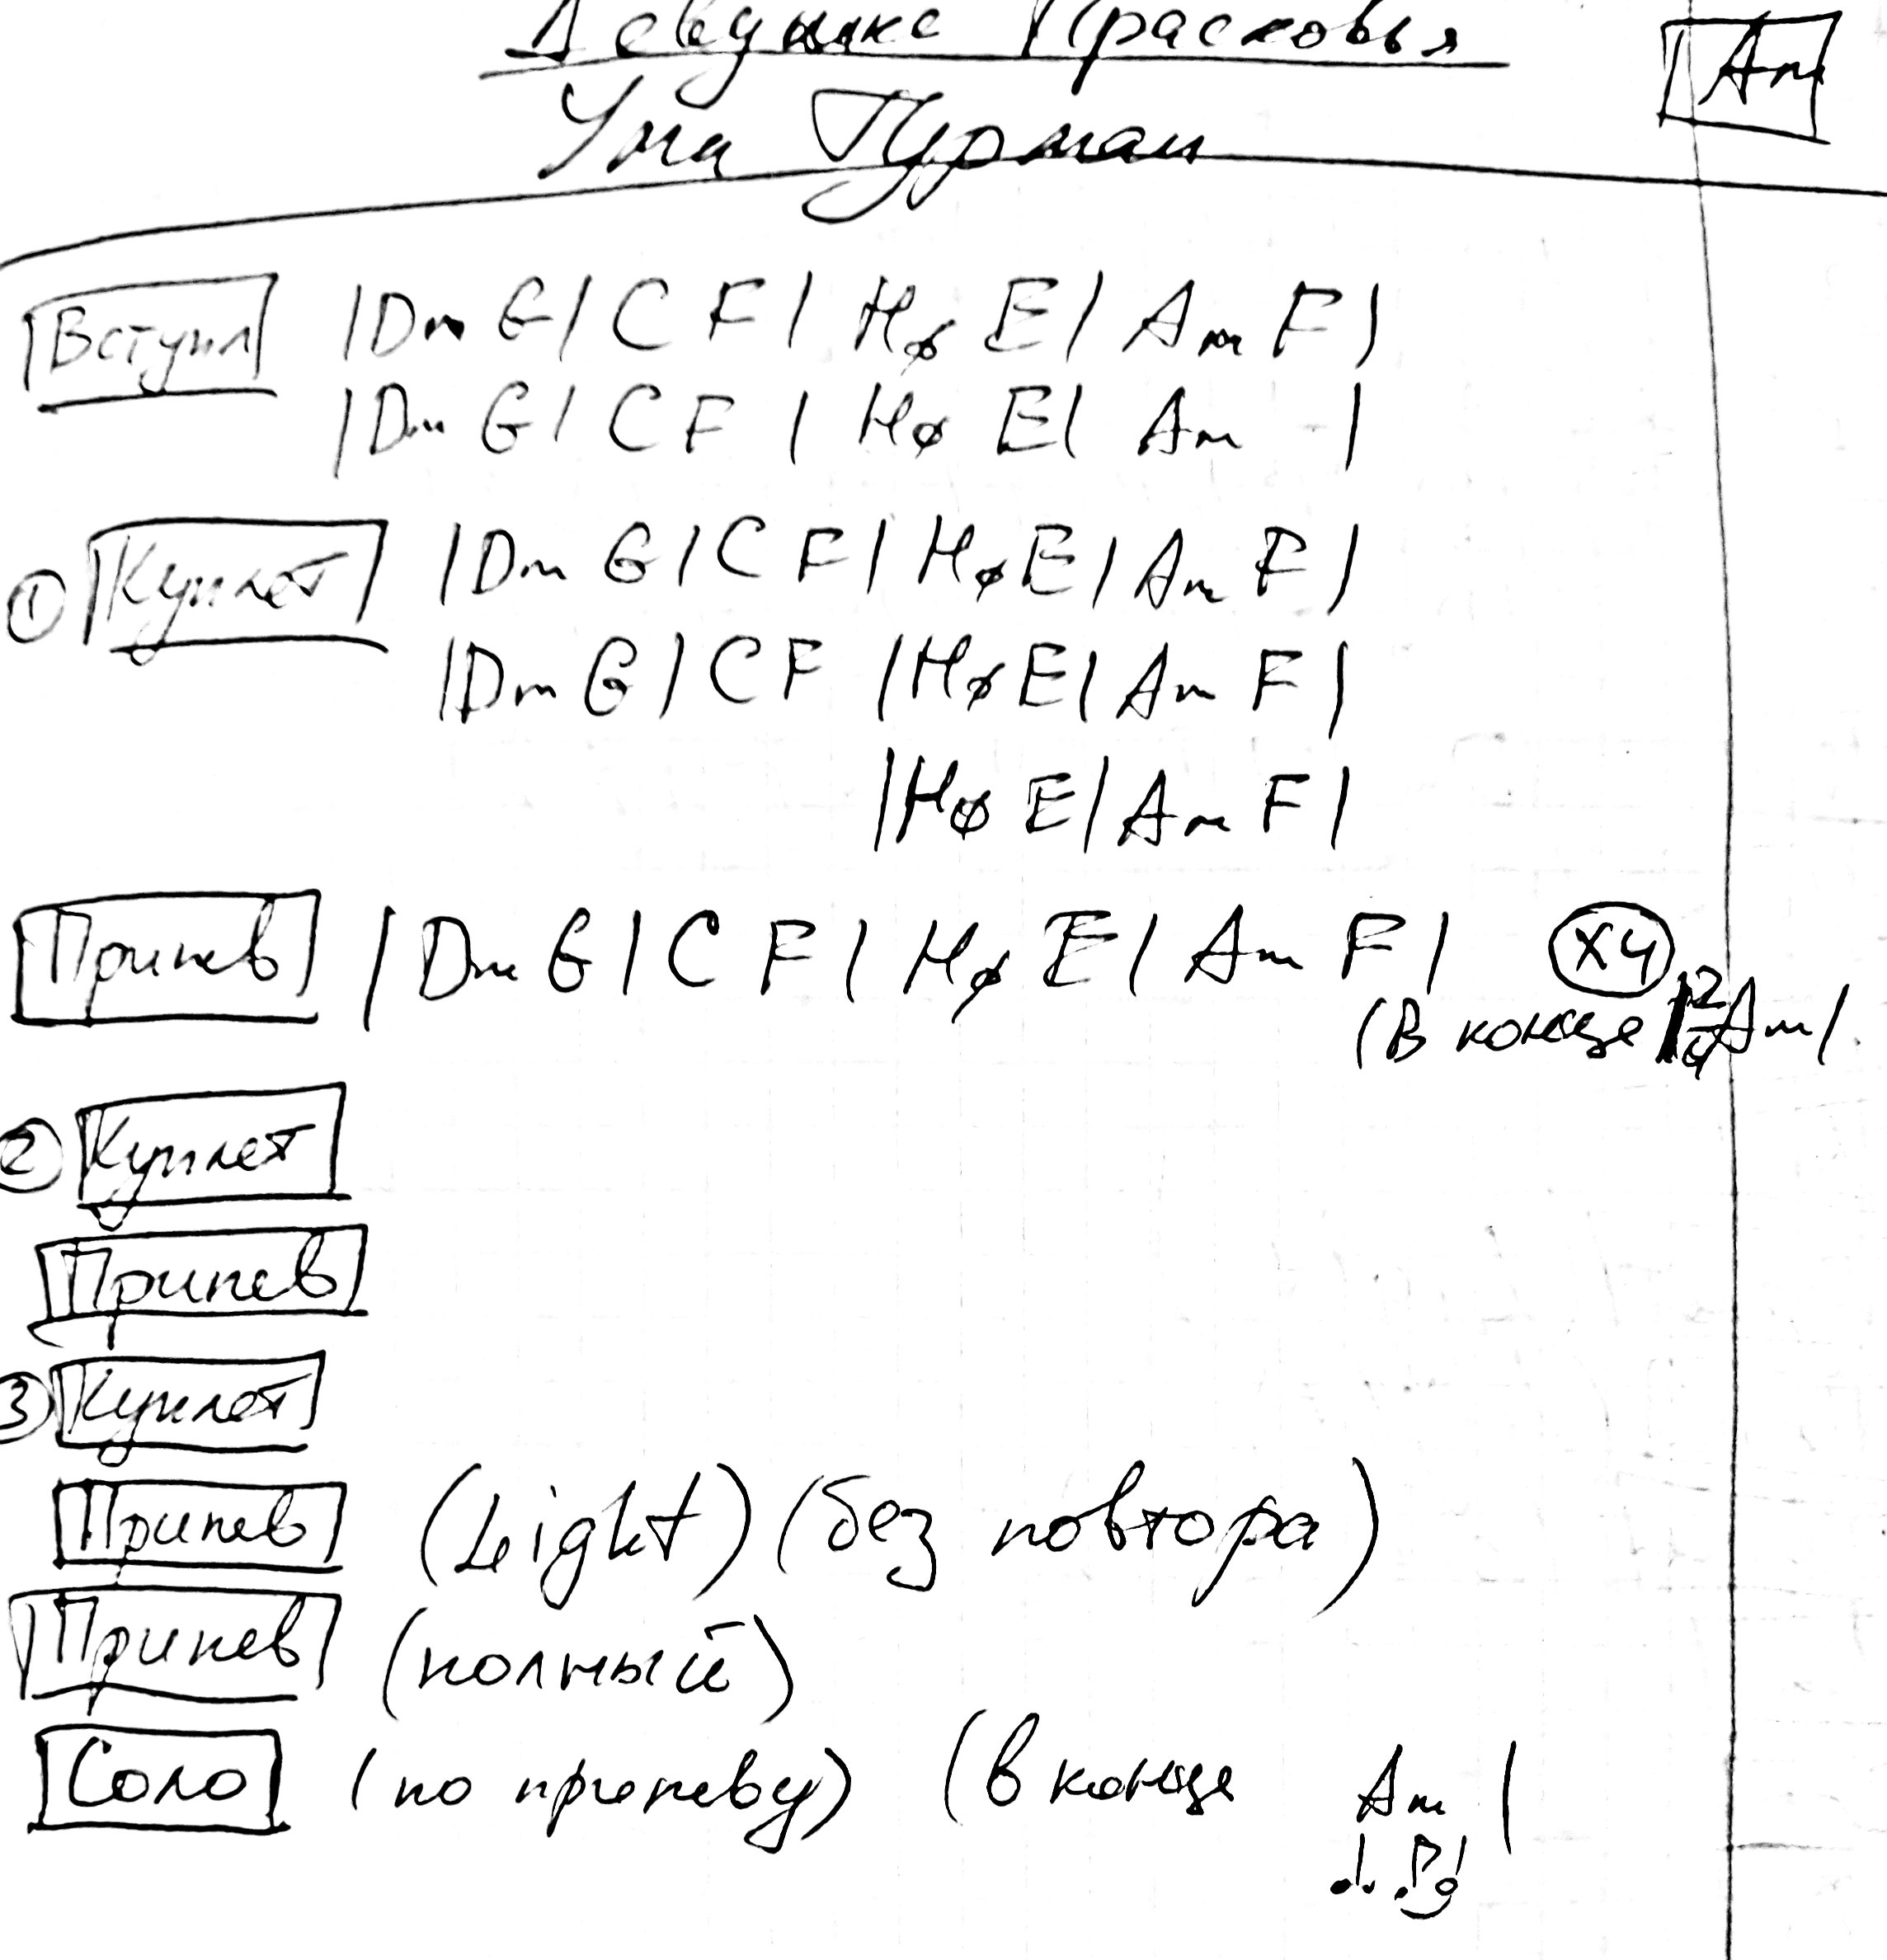 Девушка Прасковья
Ума Турман
Am
Вступл |Dm G| C F | Hø E | Am F |
|Dm G| C F | Hø E| Am |
① Куплет |Dm G | C F | Hø E | Am F |
|Dm G | C F | Hø E | Am F |
|Hø E | Am F |
Припев | Dm G | C F | Hø E | Am F | x4
(В конце | 2/4 Am |
② Куплет
Припев
3 Куплет
Припев (Light) (без повтора)
Припев (полный)
Соло (по припеву) (в конце Am |